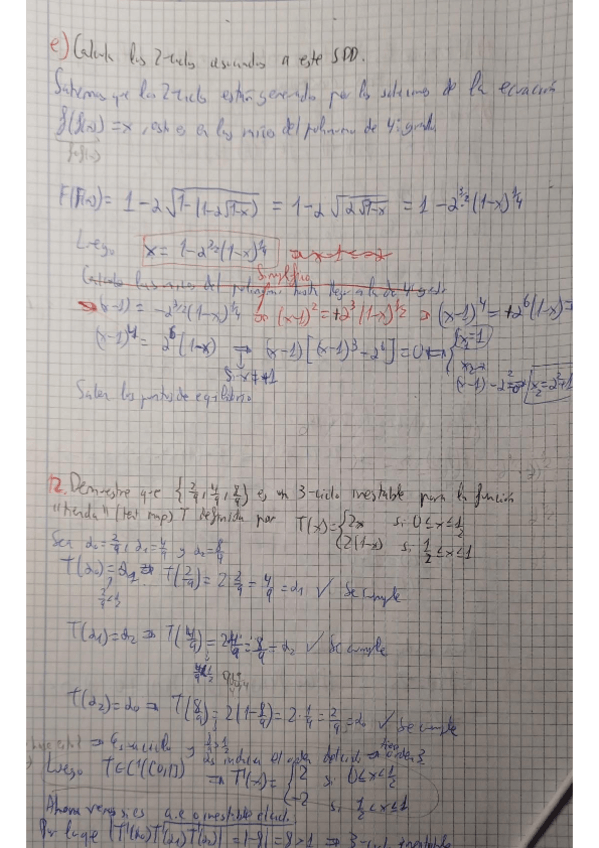 e) Calcula los 2-ciclos asociados a este SDD.
Sabemos que los 2-ciclos están generados por las soluciones de la ecuación
f(f(x)) = x, esto es en las raíces del polinomio de 4º grado
F(F(x)) = 1-2√(1-(1-2√(1-x))) = 1-2√(2√(1-x)) = 1-2^{3/2}(1-x)^{1/4}
Luego x = 1-2^{3/2}(1-x)^{1/4}
Simplifico
(x-1) = -2^{3/2}(1-x)^{1/4} ⇒ (x-1)^2 = +2^3(1-x)^{1/2} ⇒ (x-1)^4 = +2^6(1-x) ⇒
(x-1)^4 = 2^6(1-x) ⇒ (x-1)[(x-1)^3-2^6] = 0 ⇔ { x_1=1
(x-1)-2^2=0 x_2=2^2+1
Salen los puntos de equilibrio
12. Demuestre que {2/9, 4/9, 8/9} es un 3-ciclo inestable para la función
"tienda" (tent map) T definida por T(x) = { 2x si 0≤x≤1/2
2(1-x) si 1/2≤x≤1
Sea α_0=2/9, α_1=4/9 y α_2=8/9
T(α_0)=α_1 ⇒ T(2/9) = 2·2/9 = 4/9 = α_1 ✓ Se cumple
2/9<1/2
T(α_1)=α_2 ⇒ T(4/9) = 2·4/9 = 8/9 = α_2 ✓ Se cumple
T(α_2)=α_0 ⇒ T(8/9) = 2(1-8/9) = 2·1/9 = 2/9 = α_0 ✓ Se cumple
8/9>1/2
Luego T∈C^1([0,1]) ⇒ T'(x) = { 2 si 0≤x<1/2
-2 si 1/2<x≤1
Ahora veremos si es a.e o inestable el ciclo.
Por lo que |T'(α_0)T'(α_1)T'(α_2)| = |-8| = 8>1 ⇒ 3-ciclo inestable